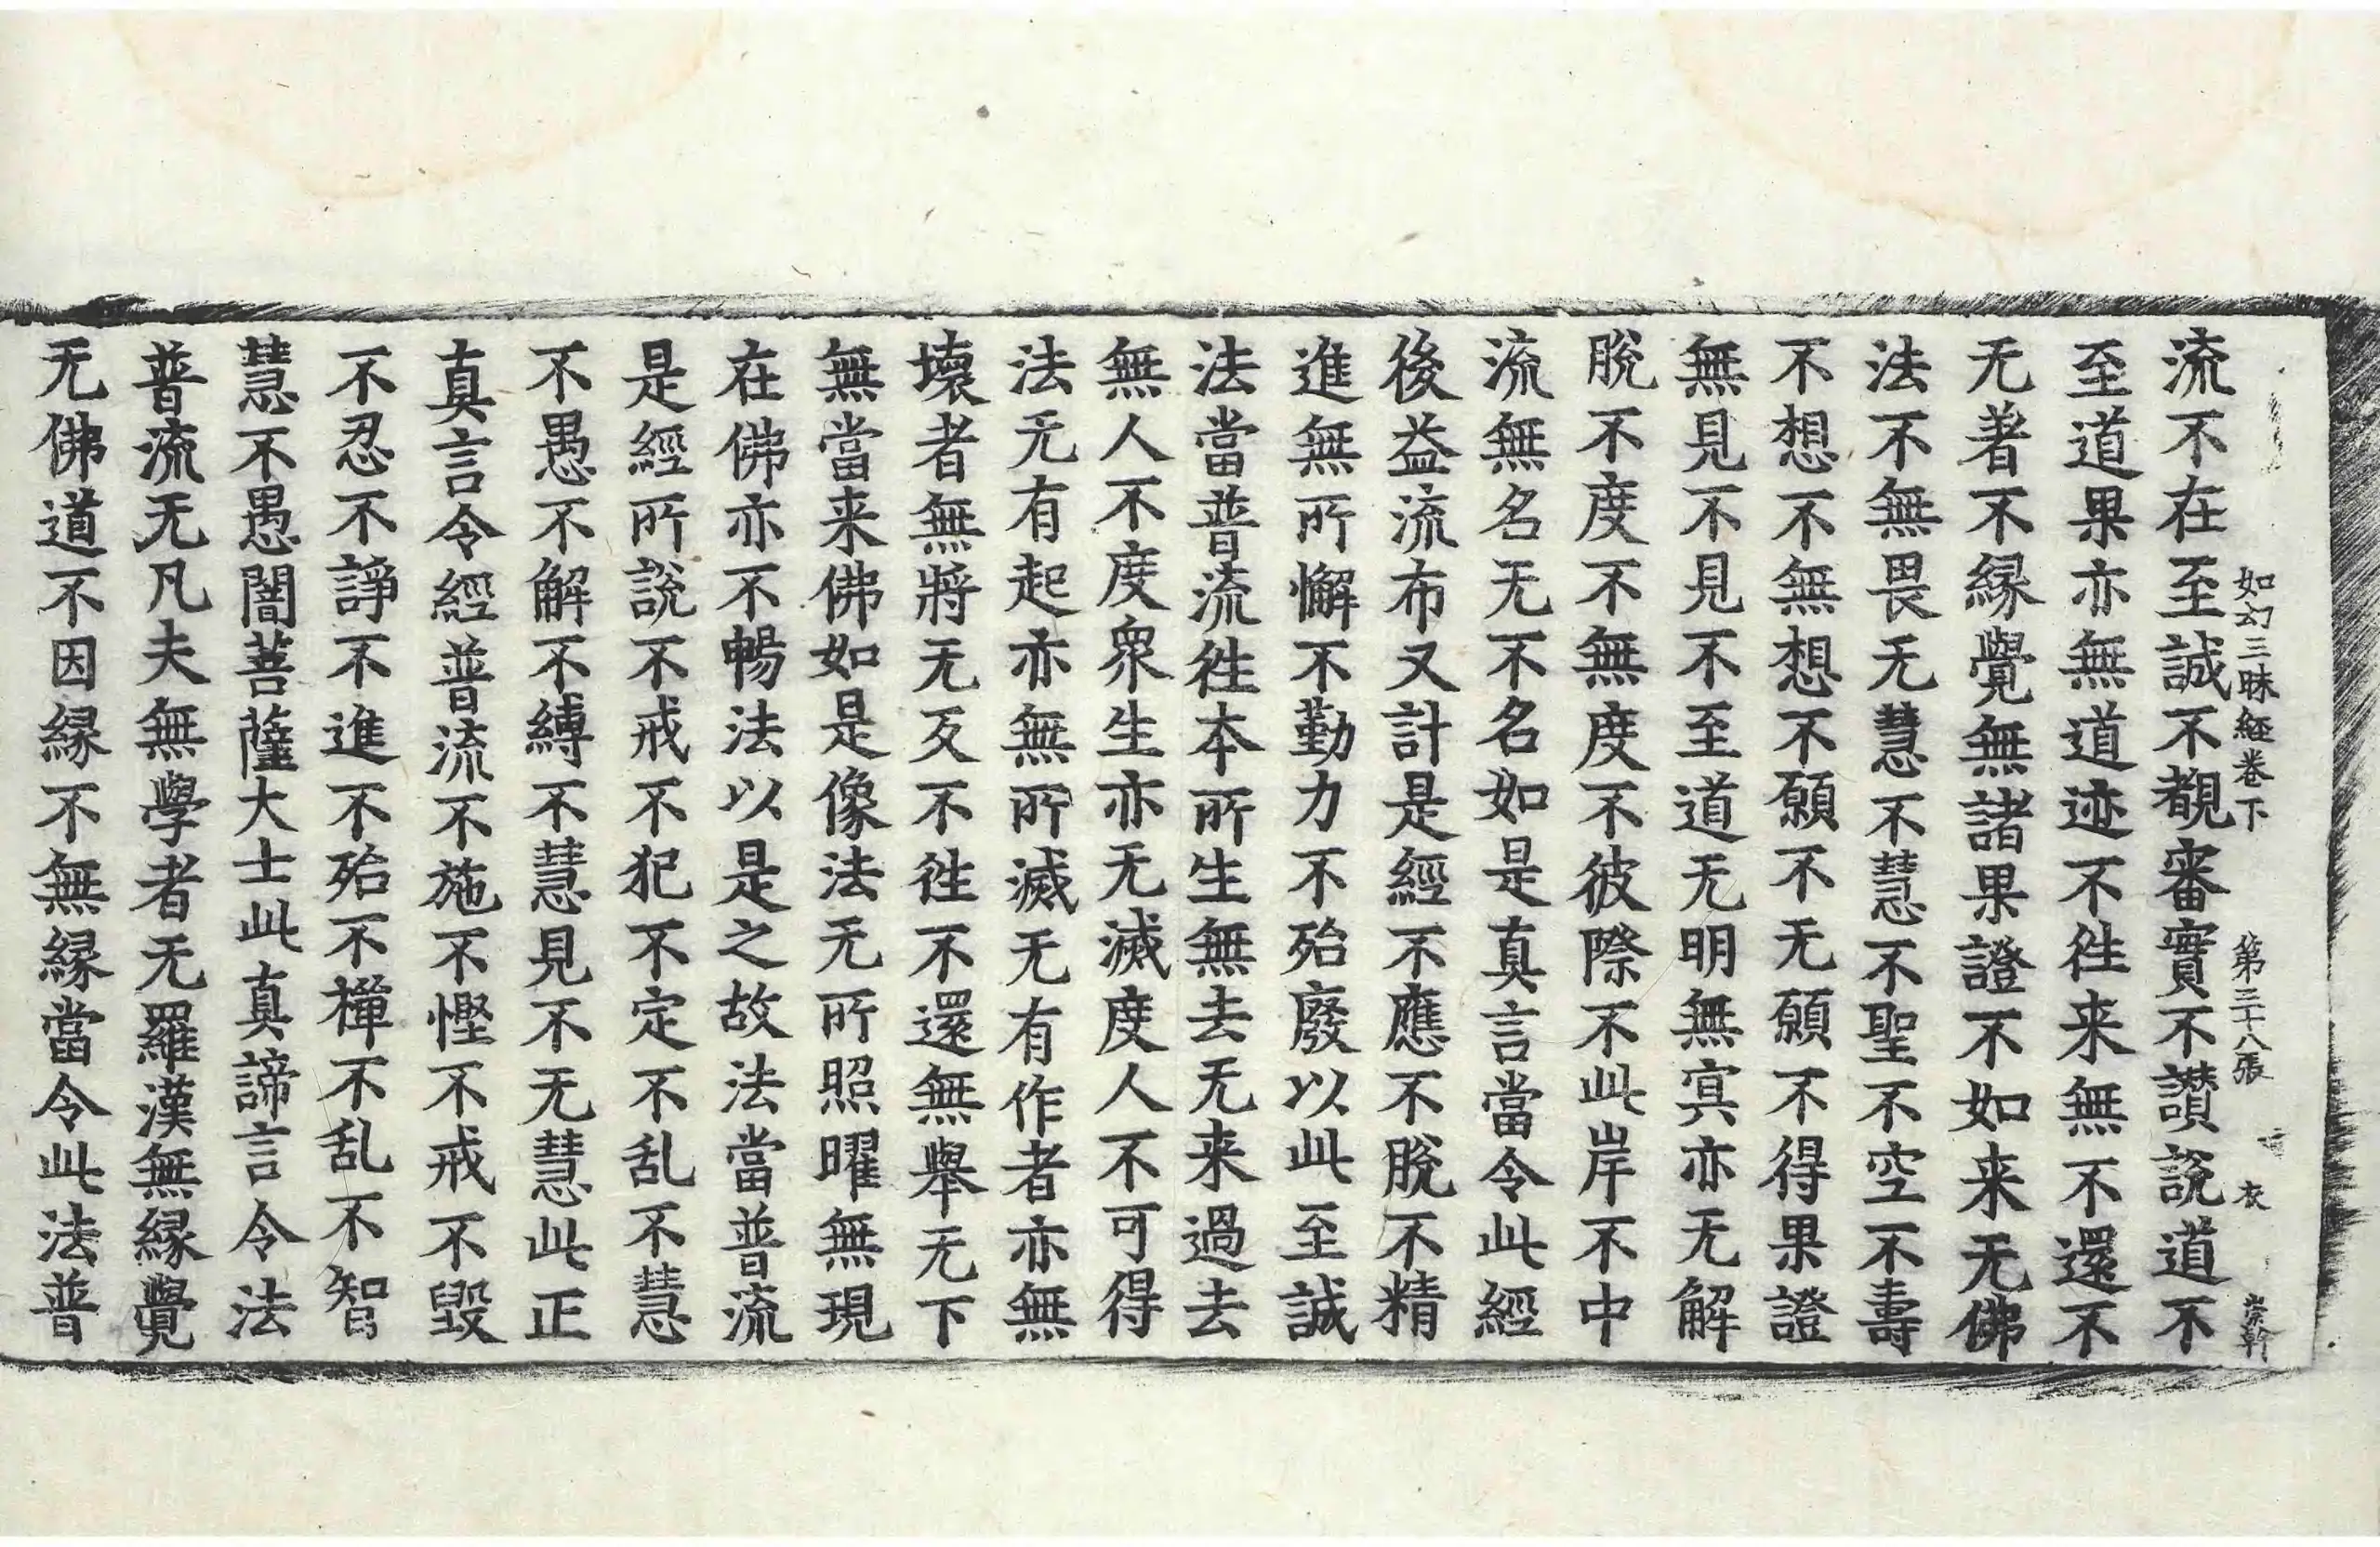 如幻三昧經卷下　第三十八張　衣　崇幹
流不在至誠不覩審實不讃說道不
至道果亦無道迹不徃来無不還不
无著不縁覺無諸果證不如来无佛
法不無畏无慧不慧不聖不空不壽
不想不無想不願不无願不得果證
無見不見不至道无明無冥亦无解
脫不度不無度不彼際不此岸不中
流無名无不名如是真言當令此經
後益流布又計是經不應不脫不精
進無所懈不勤力不殆廢以此至誠
法當普流徃本所生無去无来過去
無人不度衆生亦无滅度人不可得
法无有起亦無所滅无有作者亦無
壞者無將无反不徃不還無舉无下
無當来佛如是像法无所照曜無現
在佛亦不暢法以是之故法當普流
是經所說不戒不犯不定不乱不慧
不愚不解不縛不慧見不无慧此正
真言令經普流不施不慳不戒不毀
不忍不諍不進不殆不禪不乱不智
慧不愚闇菩薩大士此真諦言令法
普流无凡夫無學者无羅漢無縁覺
无佛道不因縁不無縁當令此法普